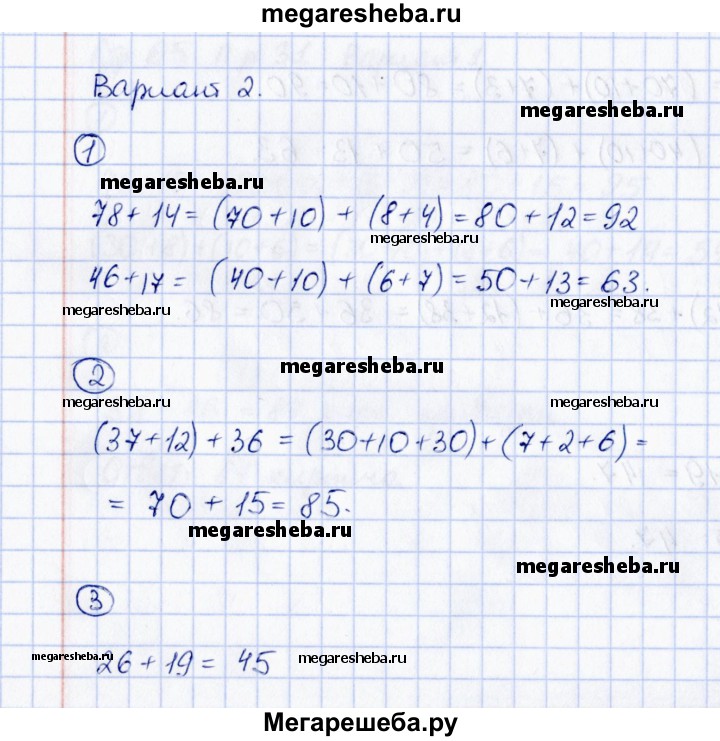 megaresheba.ru
Вариант 2.
megaresheba.ru
1
megaresheba.ru
78 + 14 = (70 + 10) + (8 + 4) = 80 + 12 = 92
megaresheba.ru
46 + 17 = (40 + 10) + (6 + 7) = 50 + 13 = 63.
megaresheba.ru
megaresheba.ru
megaresheba.ru
2
megaresheba.ru
megaresheba.ru
(37 + 12) + 36 = (30 + 10 + 30) + (7 + 2 + 6) =
= 70 + 15 = 85.
megaresheba.ru
megaresheba.ru
3
megaresheba.ru
26 + 19 = 45
megaresheba.ru
Мегарешеба.ру